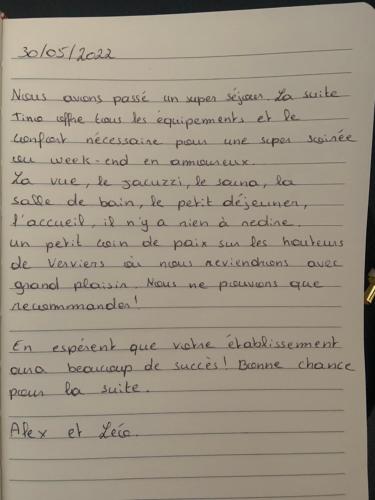 30/05/2022
Nous avons passé un super séjour. La suite
Tino offre tous les équipements et le
confort nécessaire pour une super soirée
ou week-end en amoureux.
La vue, le jacuzzi, le sauna, la
salle de bain, le petit déjeuner,
l'accueil, il n'y a rien à redire.
un petit coin de paix sur les hauteurs
de Verviers où nous reviendrons avec
grand plaisir. Nous ne pouvons que
recommander!
En espérent que votre établissement
aura beaucoup de succès! Bonne chance
pour la suite.
Alex et Léa.